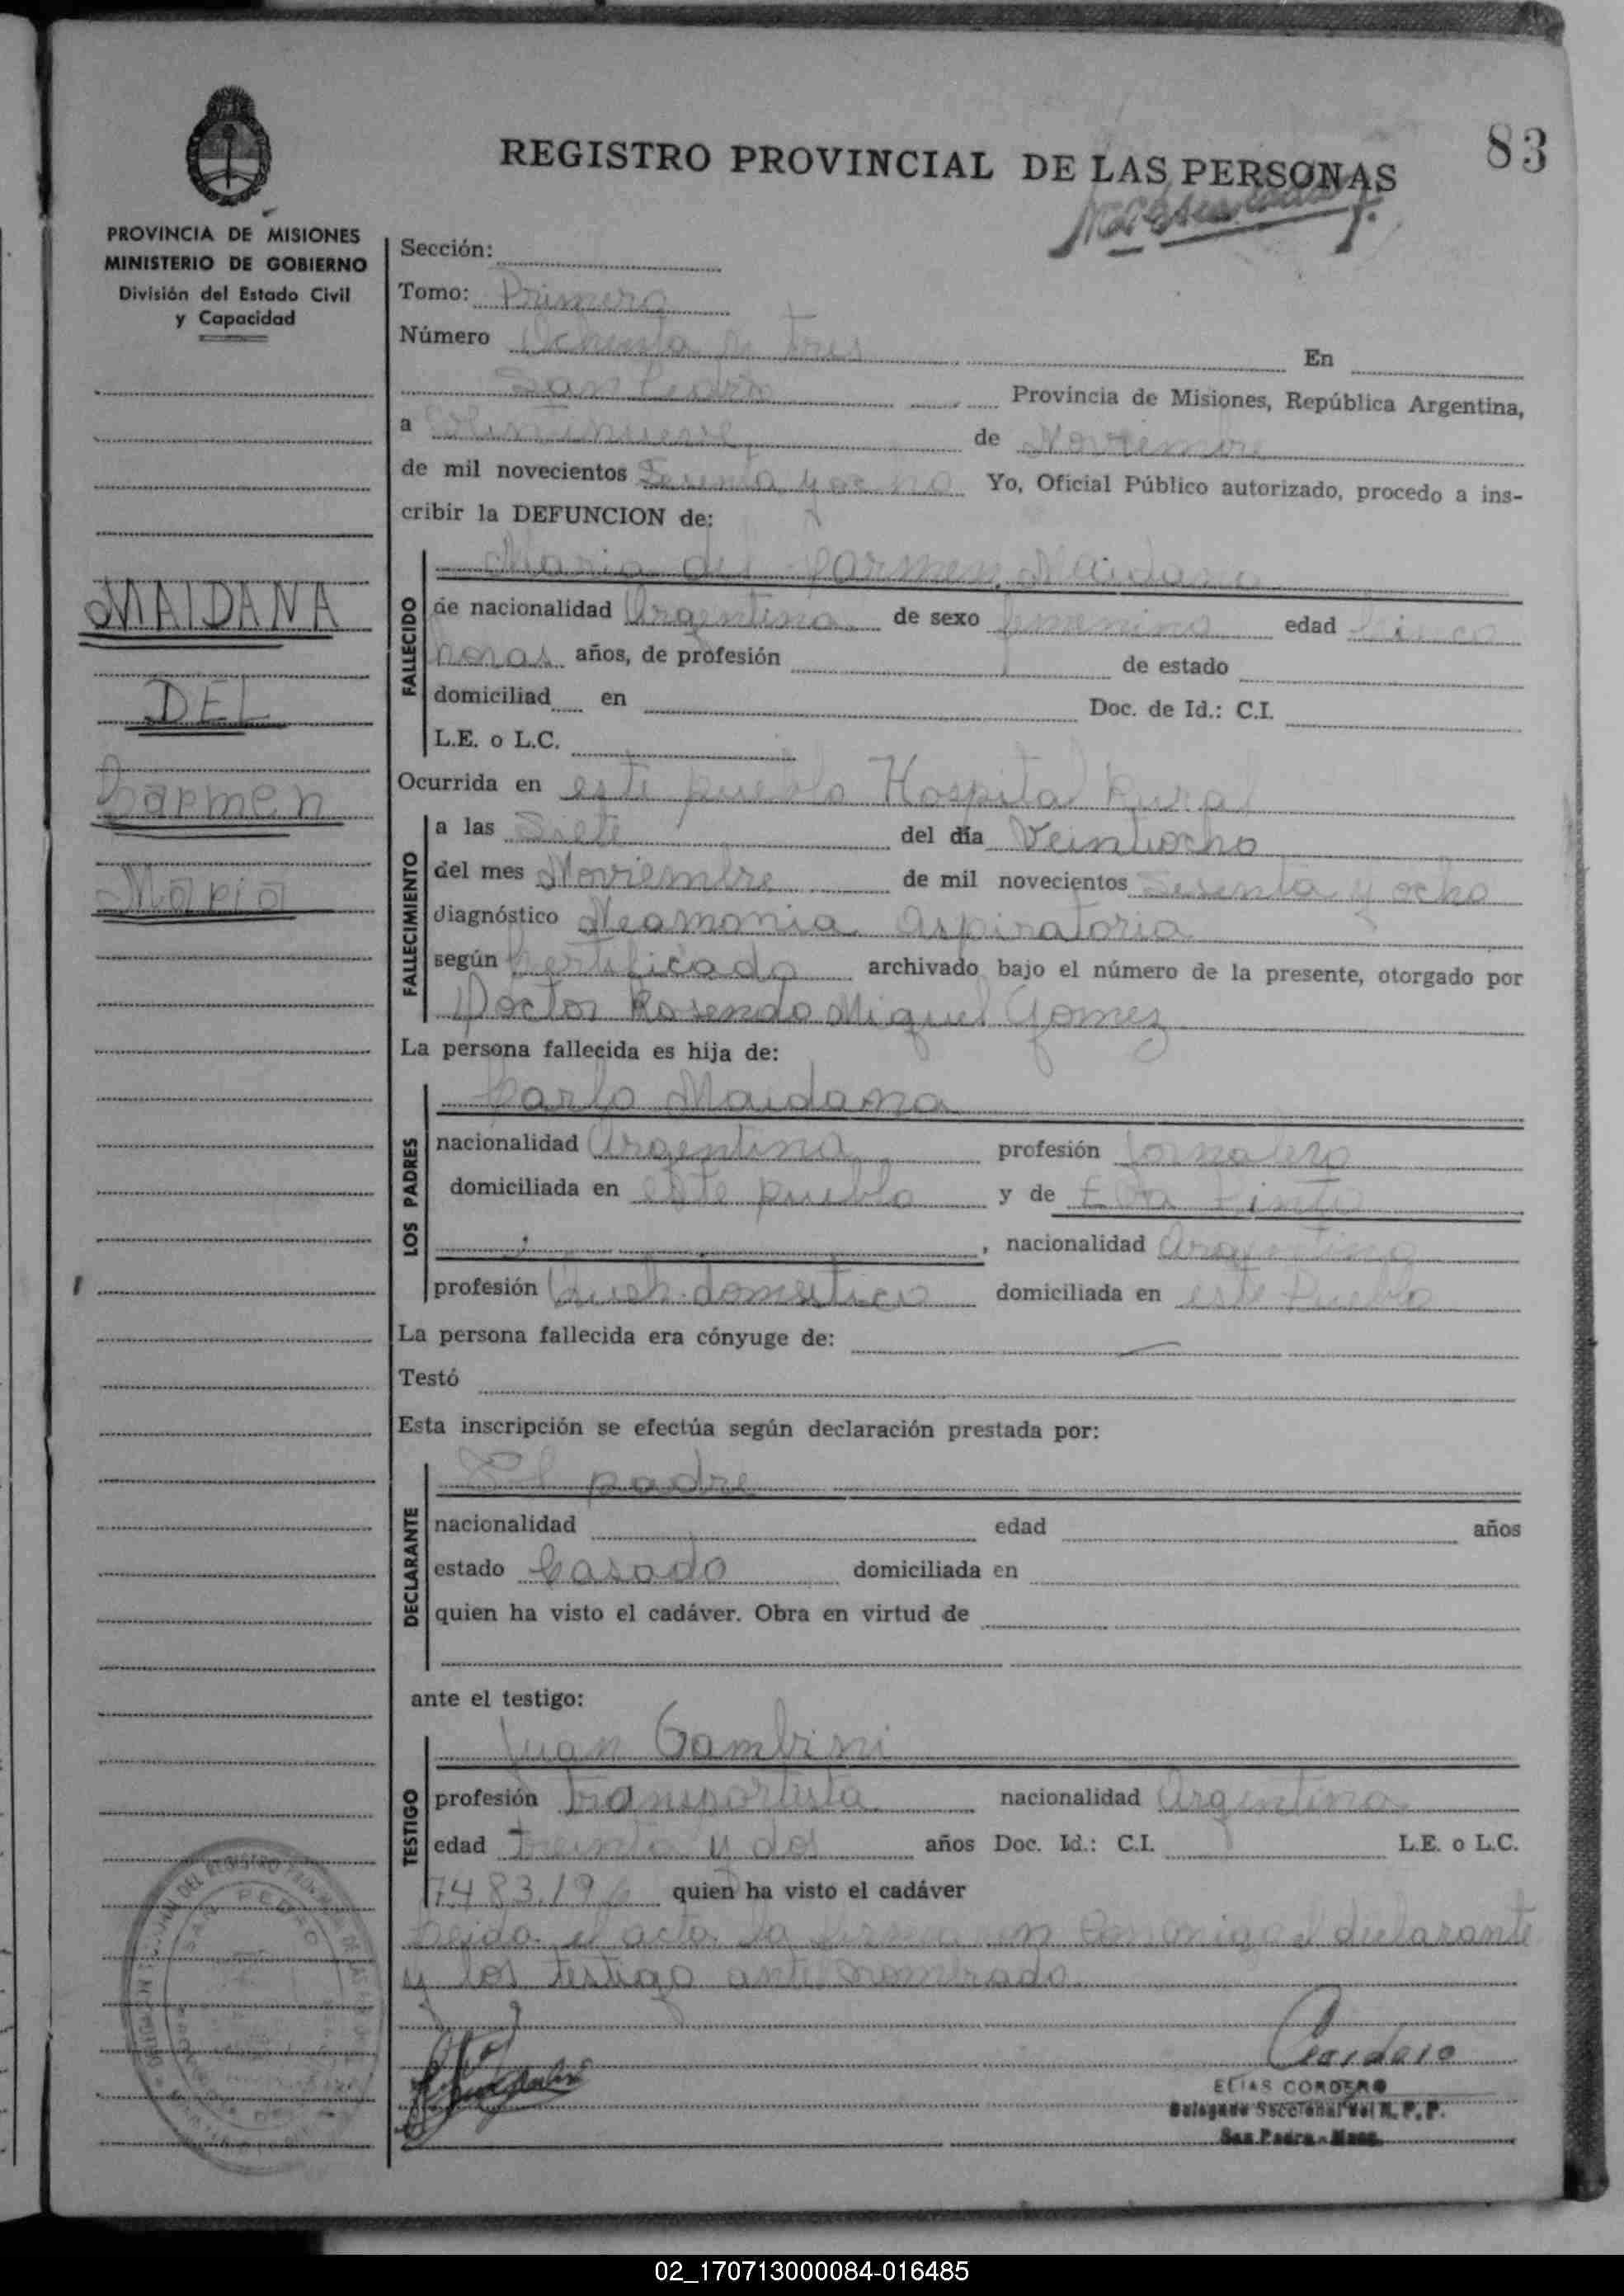 83
REGISTRO PROVINCIAL DE LAS PERSONAS
PROVINCIA DE MISIONES
MINISTERIO DE GOBIERNO
División del Estado Civil
y Capacidad
MAIDANA
DEL
Carmen
Maria
Sección:
Tomo: Primero
Número Ochenta y tres En
San Pedro Provincia de Misiones, República Argentina,
a Veintinueve de Noviembre
de mil novecientos Sesenta y ocho Yo, Oficial Público autorizado, procedo a ins-
cribir la DEFUNCION de:
FALLECIDO
Maria del Carmen Maidana
de nacionalidad Argentina de sexo femenino edad Cinco
horas años, de profesión de estado
domiciliad en Doc. de Id.: C.I.
L.E. o L.C.
Ocurrida en este pueblo Hospital Rural
FALLECIMIENTO
a las Siete del día Veintiocho
del mes Noviembre de mil novecientos Sesenta y ocho
diagnóstico Neamonia Aspiratoria
según Certificado archivado bajo el número de la presente, otorgado por
Doctor Rosendo Miguel Gomez
La persona fallecida es hija de:
LOS PADRES
Carlo Maidana
nacionalidad Argentina profesión Jornalero
domiciliada en este pueblo y de
, nacionalidad Argentina
profesión Queh. domestico domiciliada en este Pueblo
La persona fallecida era cónyuge de:
Testó
Esta inscripción se efectúa según declaración prestada por:
DECLARANTE
El padre
nacionalidad edad años
estado Casado domiciliada en
quien ha visto el cadáver. Obra en virtud de
ante el testigo:
TESTIGO
Juan Gambini
profesión transportista nacionalidad Argentina
edad treinta y dos años Doc. Id.: C.I. L.E. o L.C.
7483.196 quien ha visto el cadáver
Leida el acta la firman con Conmigo el declarante
y los testigo ante nombrado
Cordero
ELIAS CORDERO
Delegado Seccional del R. P. P.
San Pedro - Mnes.
02_170713000084-016485